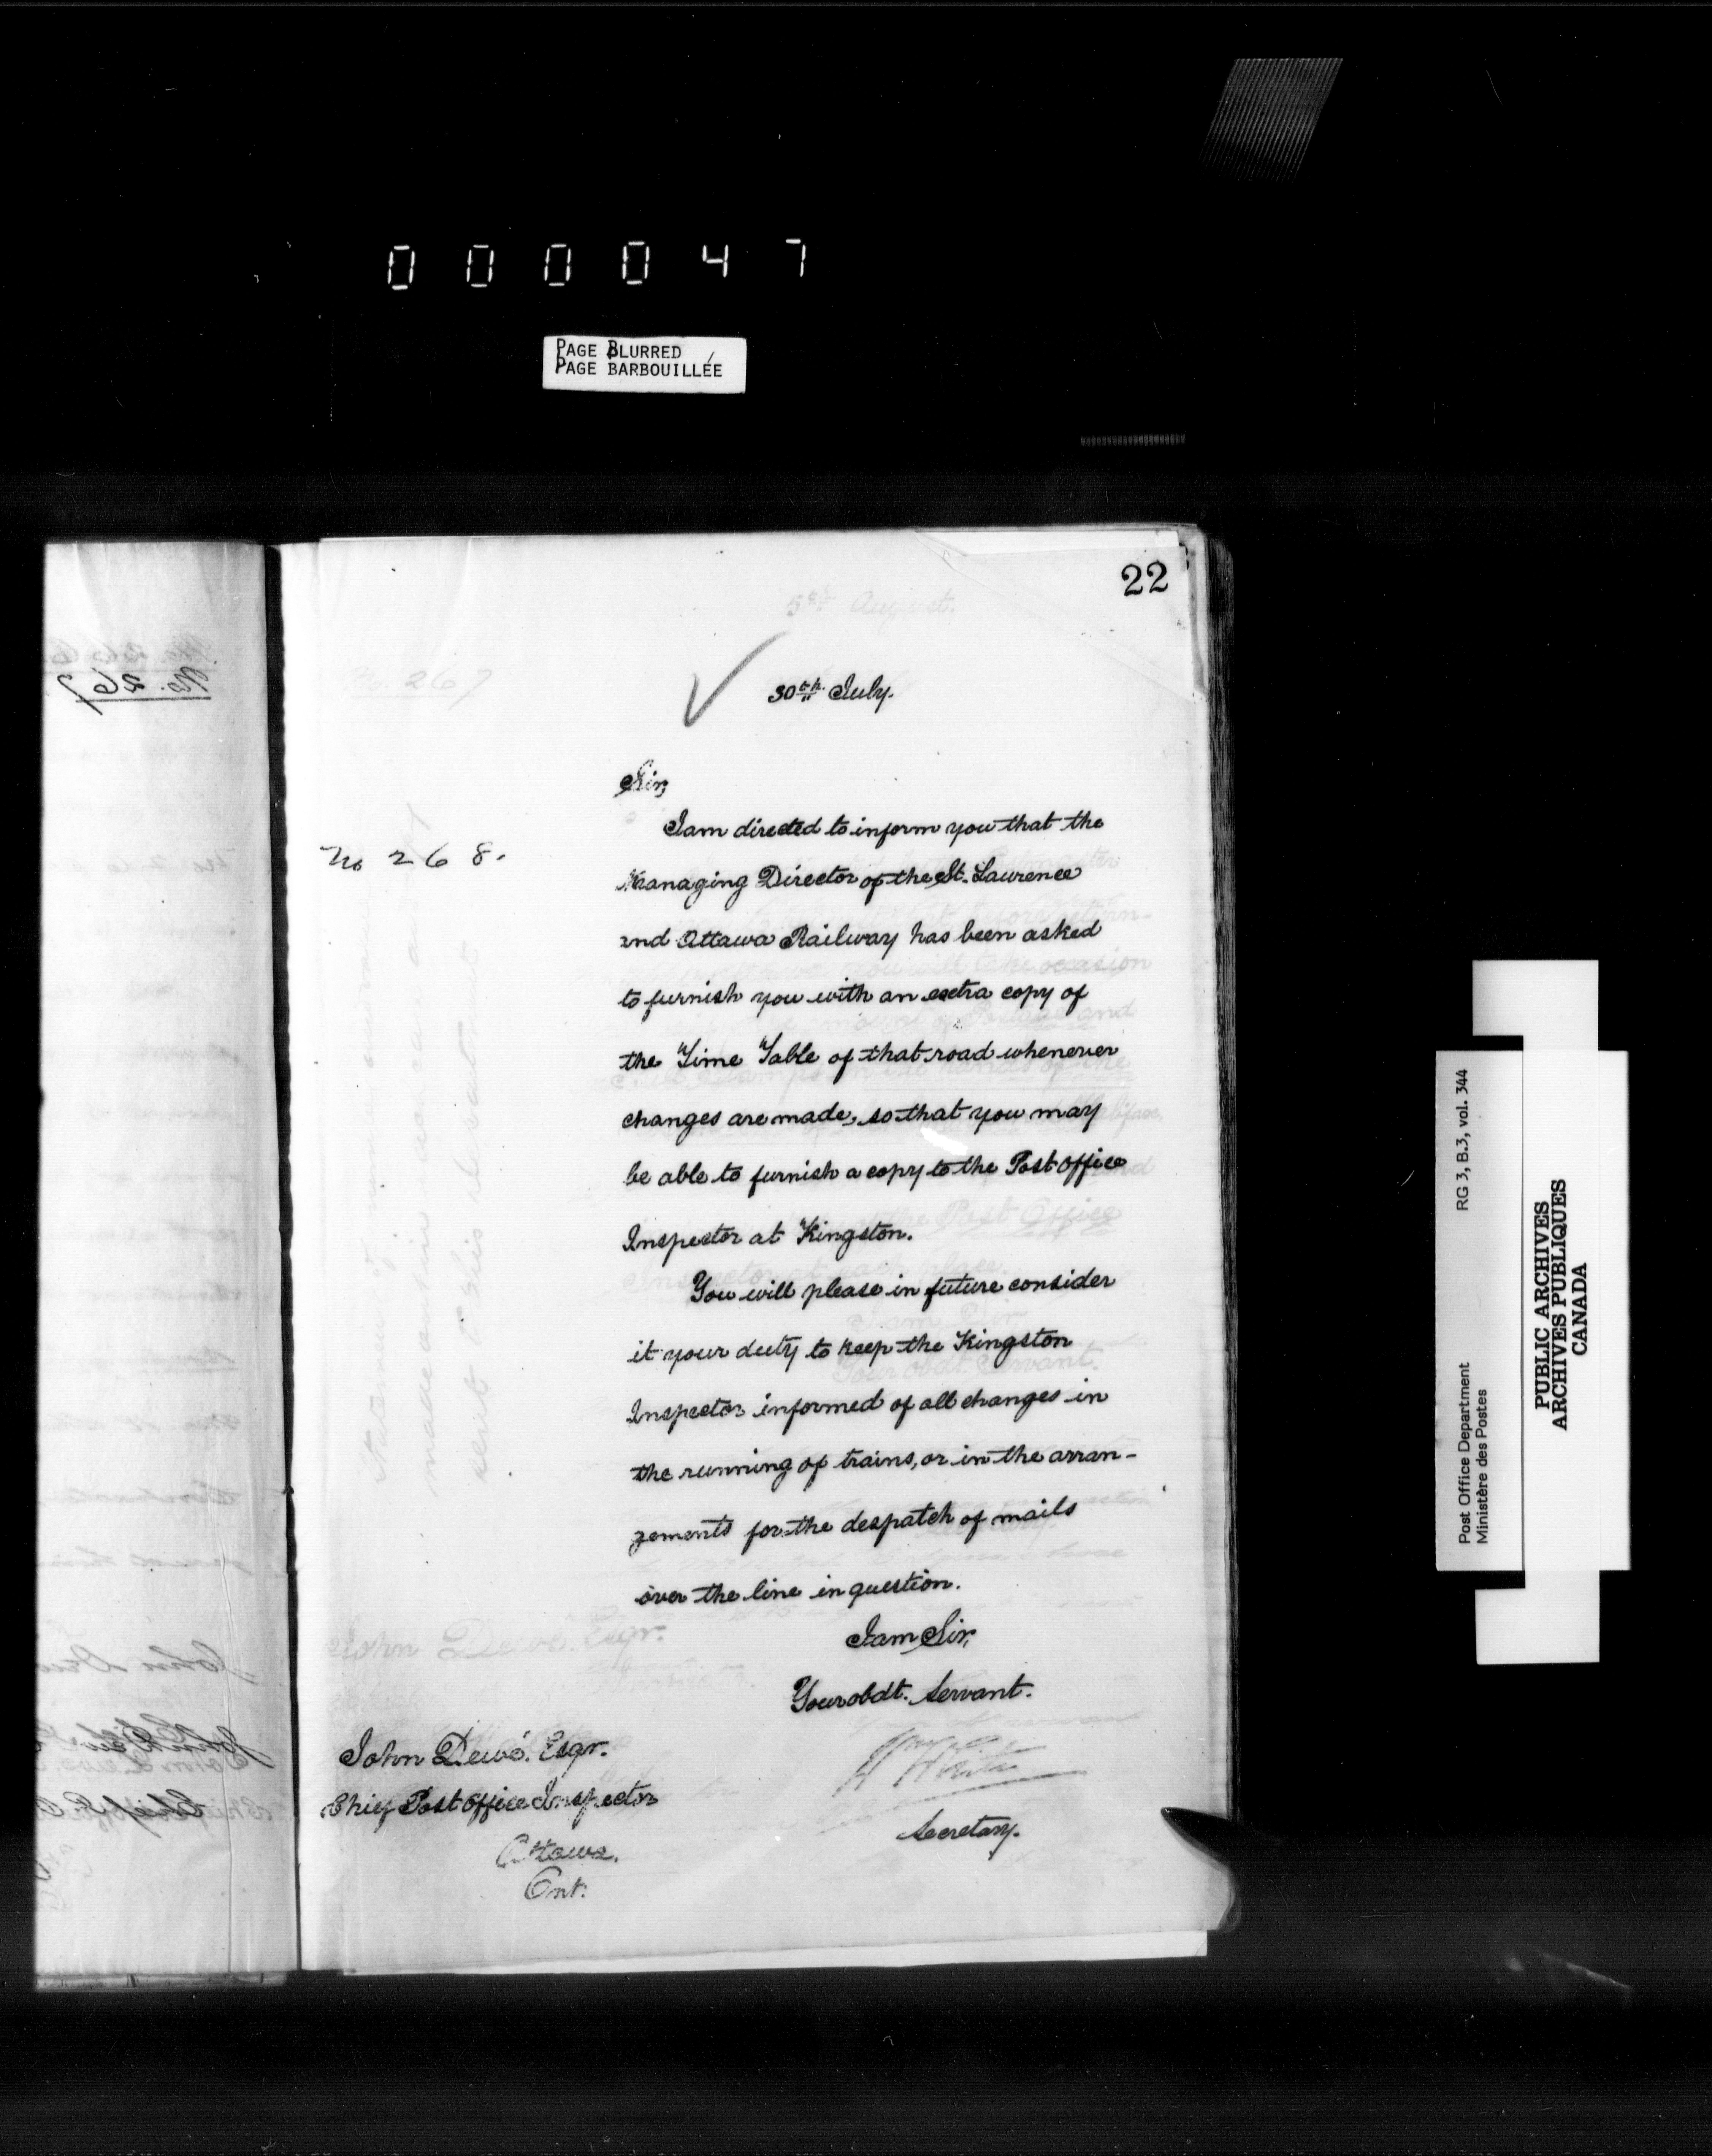 000047
PAGE BLURRED
PAGE BARBOUILLÉE
22
5th August.
30th July.
No. 267
No. 267
Sir,
No 268.
I am directed to inform you that the
Managing Director of the St. Laurence
and Ottawa Railway has been asked
to furnish you with an extra copy of
the Time Table of that road whenever
changes are made, so that you may
be able to furnish a copy to the Post Office
Inspector at Kingston.
You will please in future consider
it your duty to keep the Kingston
Inspector informed of all changes in
the running of trains, or in the arran-
gements for the despatch of mails
over the line in question.
I am Sir,
Your obdt. Servant.
John Dewé. Esqr.
Chief Post Office Inspector
Ottawa.
Ont.
Secretary.
Post Office Department
Ministère des Postes
RG 3, B.3, vol. 344
PUBLIC ARCHIVES
ARCHIVES PUBLIQUES
CANADA